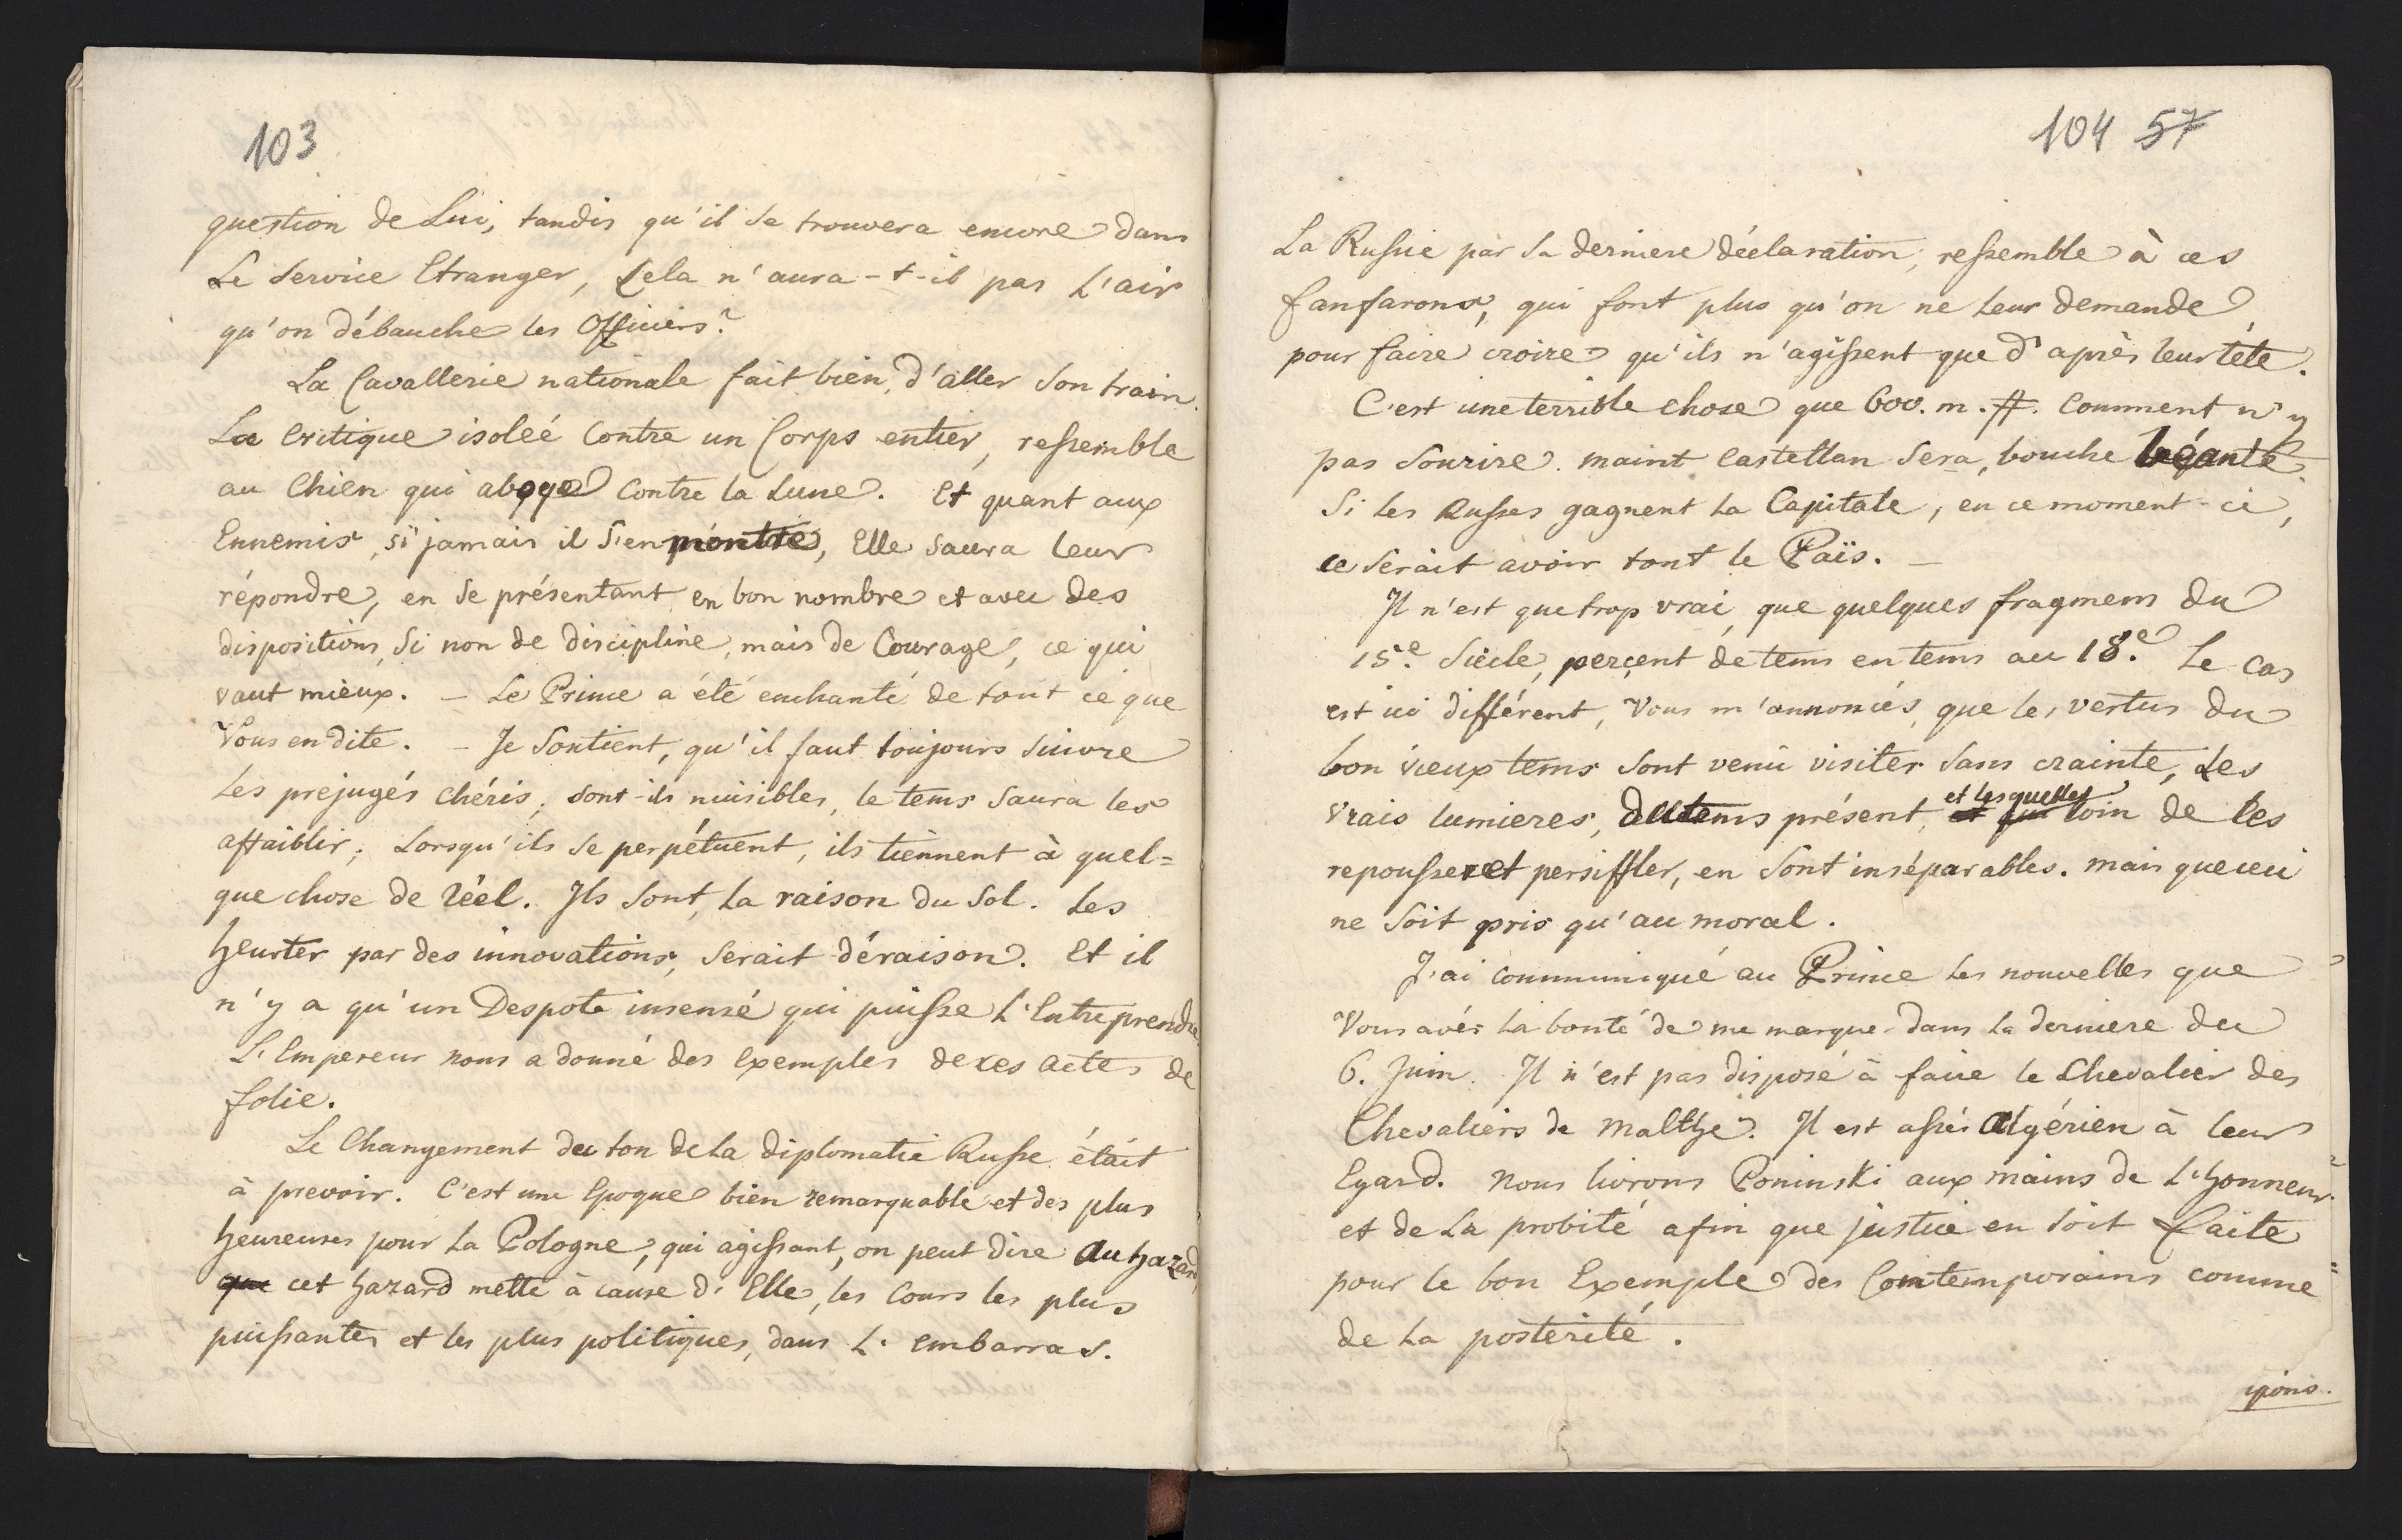 103
question de Lui, tandis qu'il se trouvera encore dans
Le Service Etranger, Cela n'aura-t-il pas L'air
qu'on débauche les Officiers?
La Cavallerie nationale fait bien, d'aller son train.
La Critique isoleé Contre un Corps entier, ressemble
au Chien qui aboye Contre la Lune. Et quant aux
Ennemis, si jamais il S'en montre, Elle Saura leur
répondre, en Se présentant en bon nombre et avec des
dispositions, Si non de discipline, mais de Courage, ce qui
vaut mieux. – Le Prince a été enchanté de tout ce que
Vous en dite. – Je Soutient, qu'il faut toujours Suivre
Les prejugés chéris; Sont-ils nuisibles, le tems Saura les
affaiblir; Lorsqu'ils Se perpétuent, ils tiennent à quel=
que chose de réel. Ils Sont, La raison du Sol. Les
heurter par des innovations, Serait déraison. Et il
n'y a qu'un Despote insensé qui puisse L'Entreprendre.
L'Empereur nous a donné des Exemples de ces actes de
folie.
Le Changement du ton de la diplomatie Russe était
à prevoir. C'est une Epoque bien remarquable et des plus
heureuses pour La Pologne, qui agissant, on peut dire au hazard,
que cet hazard mette à cause d'Elle, les Cours les plus
puissantes et les plus politiques, dans L'embarras.
104 57
La Russie par Sa derniere déclaration, ressemble à ces
fanfarons, qui font plus qu'on ne Leur demande,
pour faire croire qu'ils n'agissent que d'après leur tête.
C'est une terrible chose que 600. m. #. Comment n'y
pas Sourire. maint Castellan Sera, bouche béante.
Si les Russes gagnent La Capitale, en ce moment-ci,
ce Serait avoir tout le Païs. –
Il n'est que trop vrai, que quelques fragmens du
15.e Siècle, perçent de tems en tems au 18.e Le cas
est ici différent, Vous m'annoncés, que les vertus du
bon vieux tems Sont venû visiter Sans crainte, Les
vrais lumieres, du tems présent, et lesquelles
et qui loin de les
repousser et persiffler, en Sont inséparables. mais que ceci
ne Soit pris qu'au moral.
J'ai communiqué au Prince les nouvelles que
Vous avés La bonté de me marque dans La derniere du
6. Juin. Il n'est pas disposé à faire le Chevalier des
Chevaliers de Malthe. Il est assés algérien à leur
Egard. Nous livrons Poninski aux mains de L'honneur
et de La probité afin que justice en Soit faite
pour le bon Exemple des Contemporains comme
de La postérité.